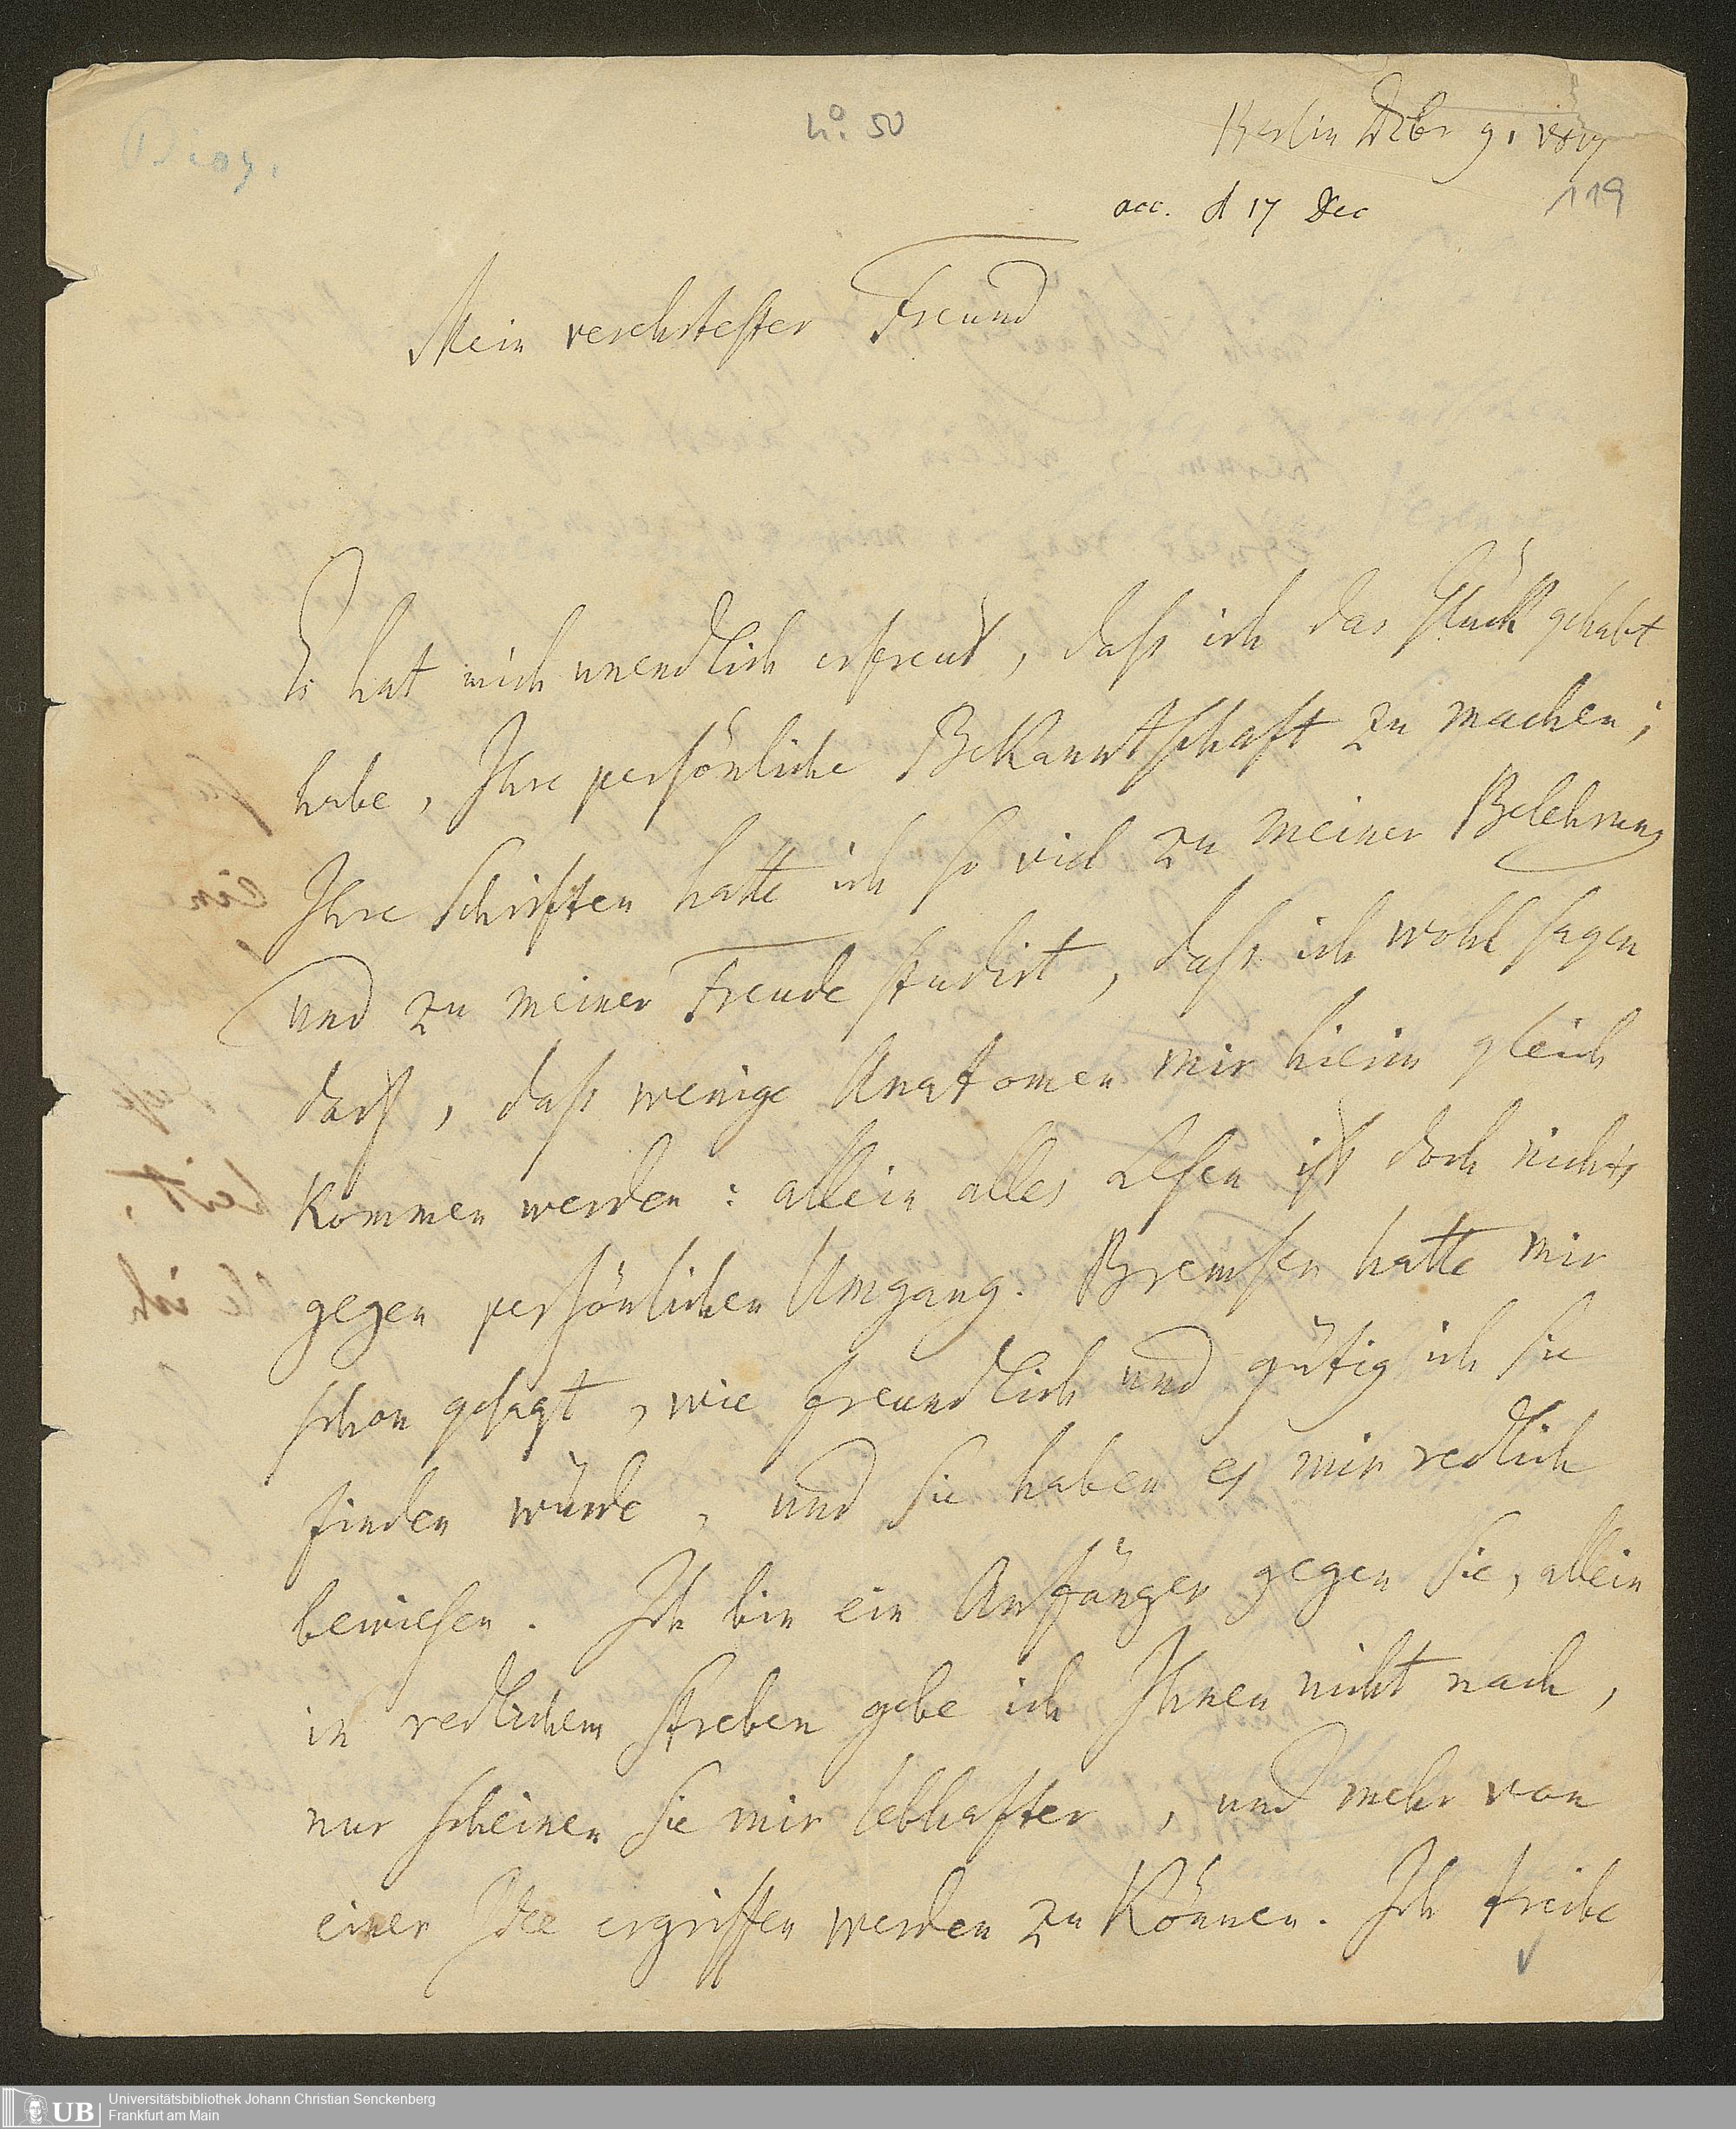 Biog.
No. 50
Berlin Dcbr 9. 1817
119
acc. d 17 Dec
Mein verehrtester Freund
Es hat mich unendlich erfreut, daſs ich das Glück gehabt
habe, Ihre persönliche Bekanntschaft zu machen;
Ihre Schriften hatte ich so viel zu meiner Belehrung
und zu meiner Freude studirt, daſs ich wohl sagen
darf, daſs wenige Anatomen mir hierin gleich
kommen werden: allein alles Lesen ist doch nichts
gegen persönlichen Umgang. Bremser hatte mir
schon gesagt, wie freundlich und gütig ich Sie
finden würde, und Sie haben es mir redlich
bewiesen. Ich bin ein Anfänger gegen Sie, allein
in redlichem Streben gebe ich Ihnen nicht nach,
nur scheinen Sie mir lebhafter, und mehr von
einer Idee ergriffen werden zu können. Ich treibe
UB
Universitätsbibliothek Johann Christian Senckenberg
Frankfurt am Main